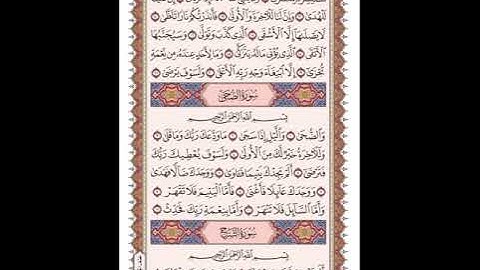 لِلْهُدَىٰ ۝ وَإِنَّ لَنَا لَلْآخِرَةَ وَالْأُولَىٰ ۝ فَأَنذَرْتُكُمْ نَارًا تَلَظَّىٰ ۝
لَا يَصْلَاهَا إِلَّا الْأَشْقَى ۝ الَّذِي كَذَّبَ وَتَوَلَّىٰ ۝ وَسَيُجَنَّبُهَا
الْأَتْقَى ۝ الَّذِي يُؤْتِي مَالَهُ يَتَزَكَّىٰ ۝ وَمَا لِأَحَدٍ عِندَهُ مِن نِّعْمَةٍ
تُجْزَىٰ ۝ إِلَّا ابْتِغَاءَ وَجْهِ رَبِّهِ الْأَعْلَىٰ ۝ وَلَسَوْفَ يَرْضَىٰ ۝
سُورَةُ الضُّحَىٰ
بِسْمِ اللَّهِ الرَّحْمَٰنِ الرَّحِيمِ
وَالضُّحَىٰ ۝ وَاللَّيْلِ إِذَا سَجَىٰ ۝ مَا وَدَّعَكَ رَبُّكَ وَمَا قَلَىٰ ۝
وَلَلْآخِرَةُ خَيْرٌ لَّكَ مِنَ الْأُولَىٰ ۝ وَلَسَوْفَ يُعْطِيكَ رَبُّكَ
فَتَرْضَىٰ ۝ أَلَمْ يَجِدْكَ يَتِيمًا فَآوَىٰ ۝ وَوَجَدَكَ ضَالًّا فَهَدَىٰ
۝ وَوَجَدَكَ عَائِلًا فَأَغْنَىٰ ۝ فَأَمَّا الْيَتِيمَ فَلَا تَقْهَرْ ۝
وَأَمَّا السَّائِلَ فَلَا تَنْهَرْ ۝ وَأَمَّا بِنِعْمَةِ رَبِّكَ فَحَدِّثْ ۝
سُورَةُ الشَّرْحِ
بِسْمِ اللَّهِ الرَّحْمَٰنِ الرَّحِيمِ